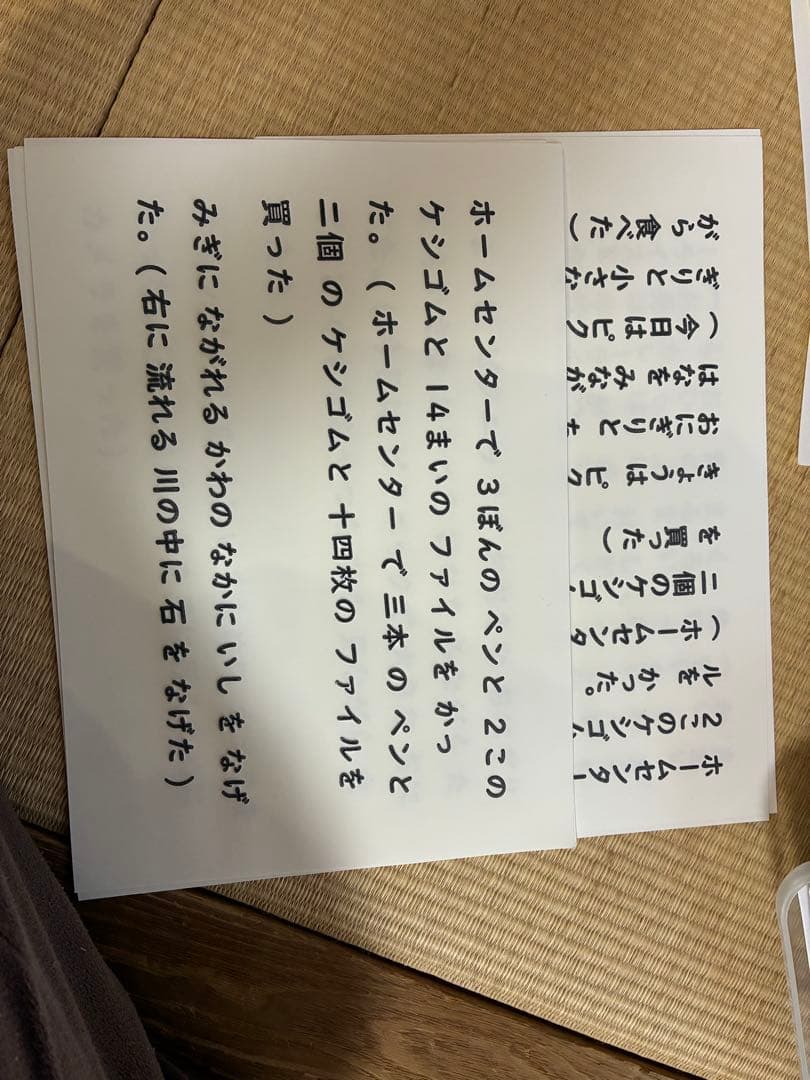 ホームセンターで 3ぼんの ペンと 2この
ケシゴムと 14まいの ファイルを かっ
た。( ホームセンター で 三本 の ペンと
二個 の ケシゴムと 十四枚の ファイルを
買った )
みぎに ながれる かわの なかに いし を なげ
た。( 右に 流れる 川の中に 石 を なげた )
ホームセンター
2このケシゴ
ルを かった。
(ホームセンタ
二個のケシゴ
を 買った)
きょうは ピク
おにぎりと
はなをみなが
(今日は ピク
ぎりと 小さな
がら 食べた)